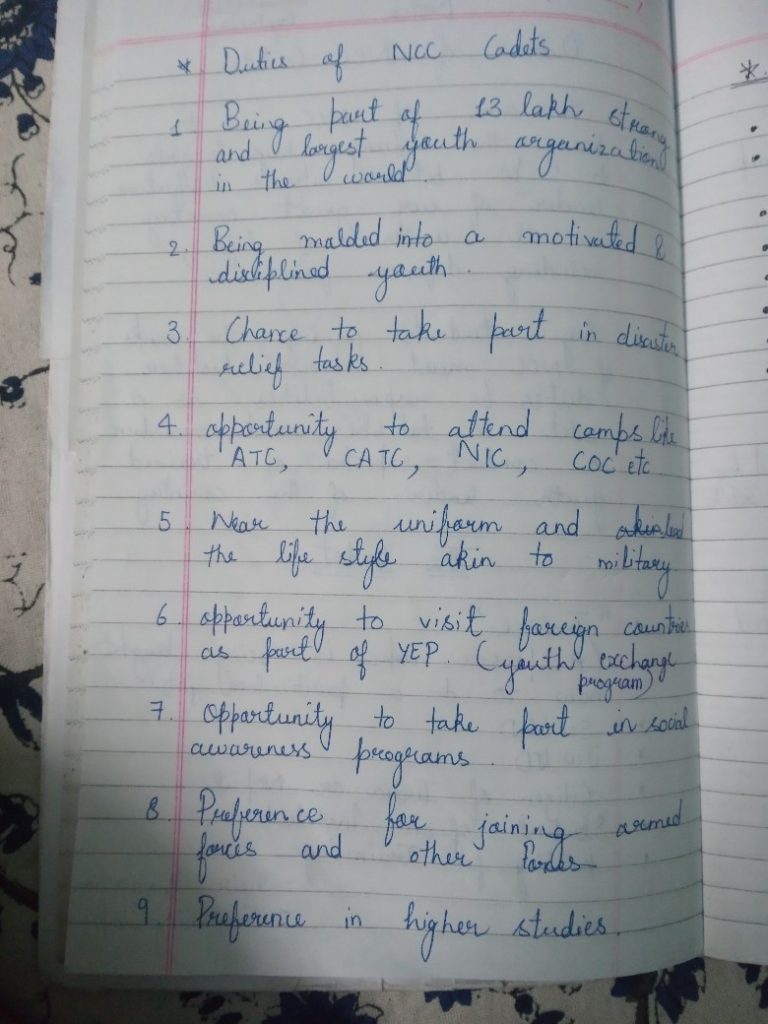 * Duties of NCC Cadets
1 Being part of 13 lakh strong
and largest youth organization
in the world.
2. Being malded into a motivated &
disciplined youth.
3. Chance to take part in disaster
relief tasks.
4. opportunity to attend camps like
ATC, CATC, NIC, COC etc
5 Wear the uniform and lead
the life style akin to military
6. opportunity to visit foreign countries
as part of YEP. (youth exchange
program)
7. Opportunity to take part in social
awareness programs.
8. Preference for joining armed
forces and other forces
9 Preference in higher studies.
*